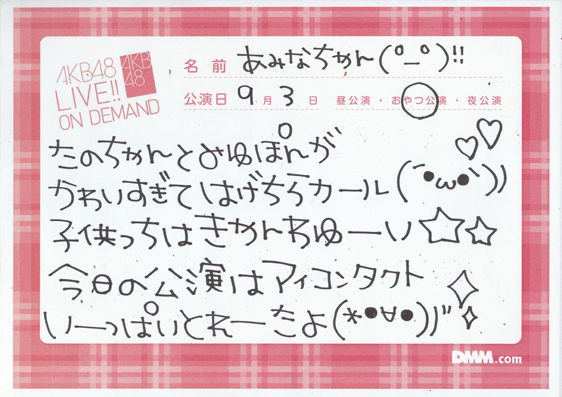 AKB48
LIVE!!
ON DEMAND
AKB
48
名前 あみなちゃん(°_°)!!
公演日 9月3日 昼公演・おやつ公演・夜公演
たのちゃんとみゆぽんが
かわいすぎてはげちらカール(´●ω●`))
子供っちはきかんちゅーい☆☆
今日の公演はアイコンタクト
いーっぱいとれーたよ(*●∀●)))"
DMM.com